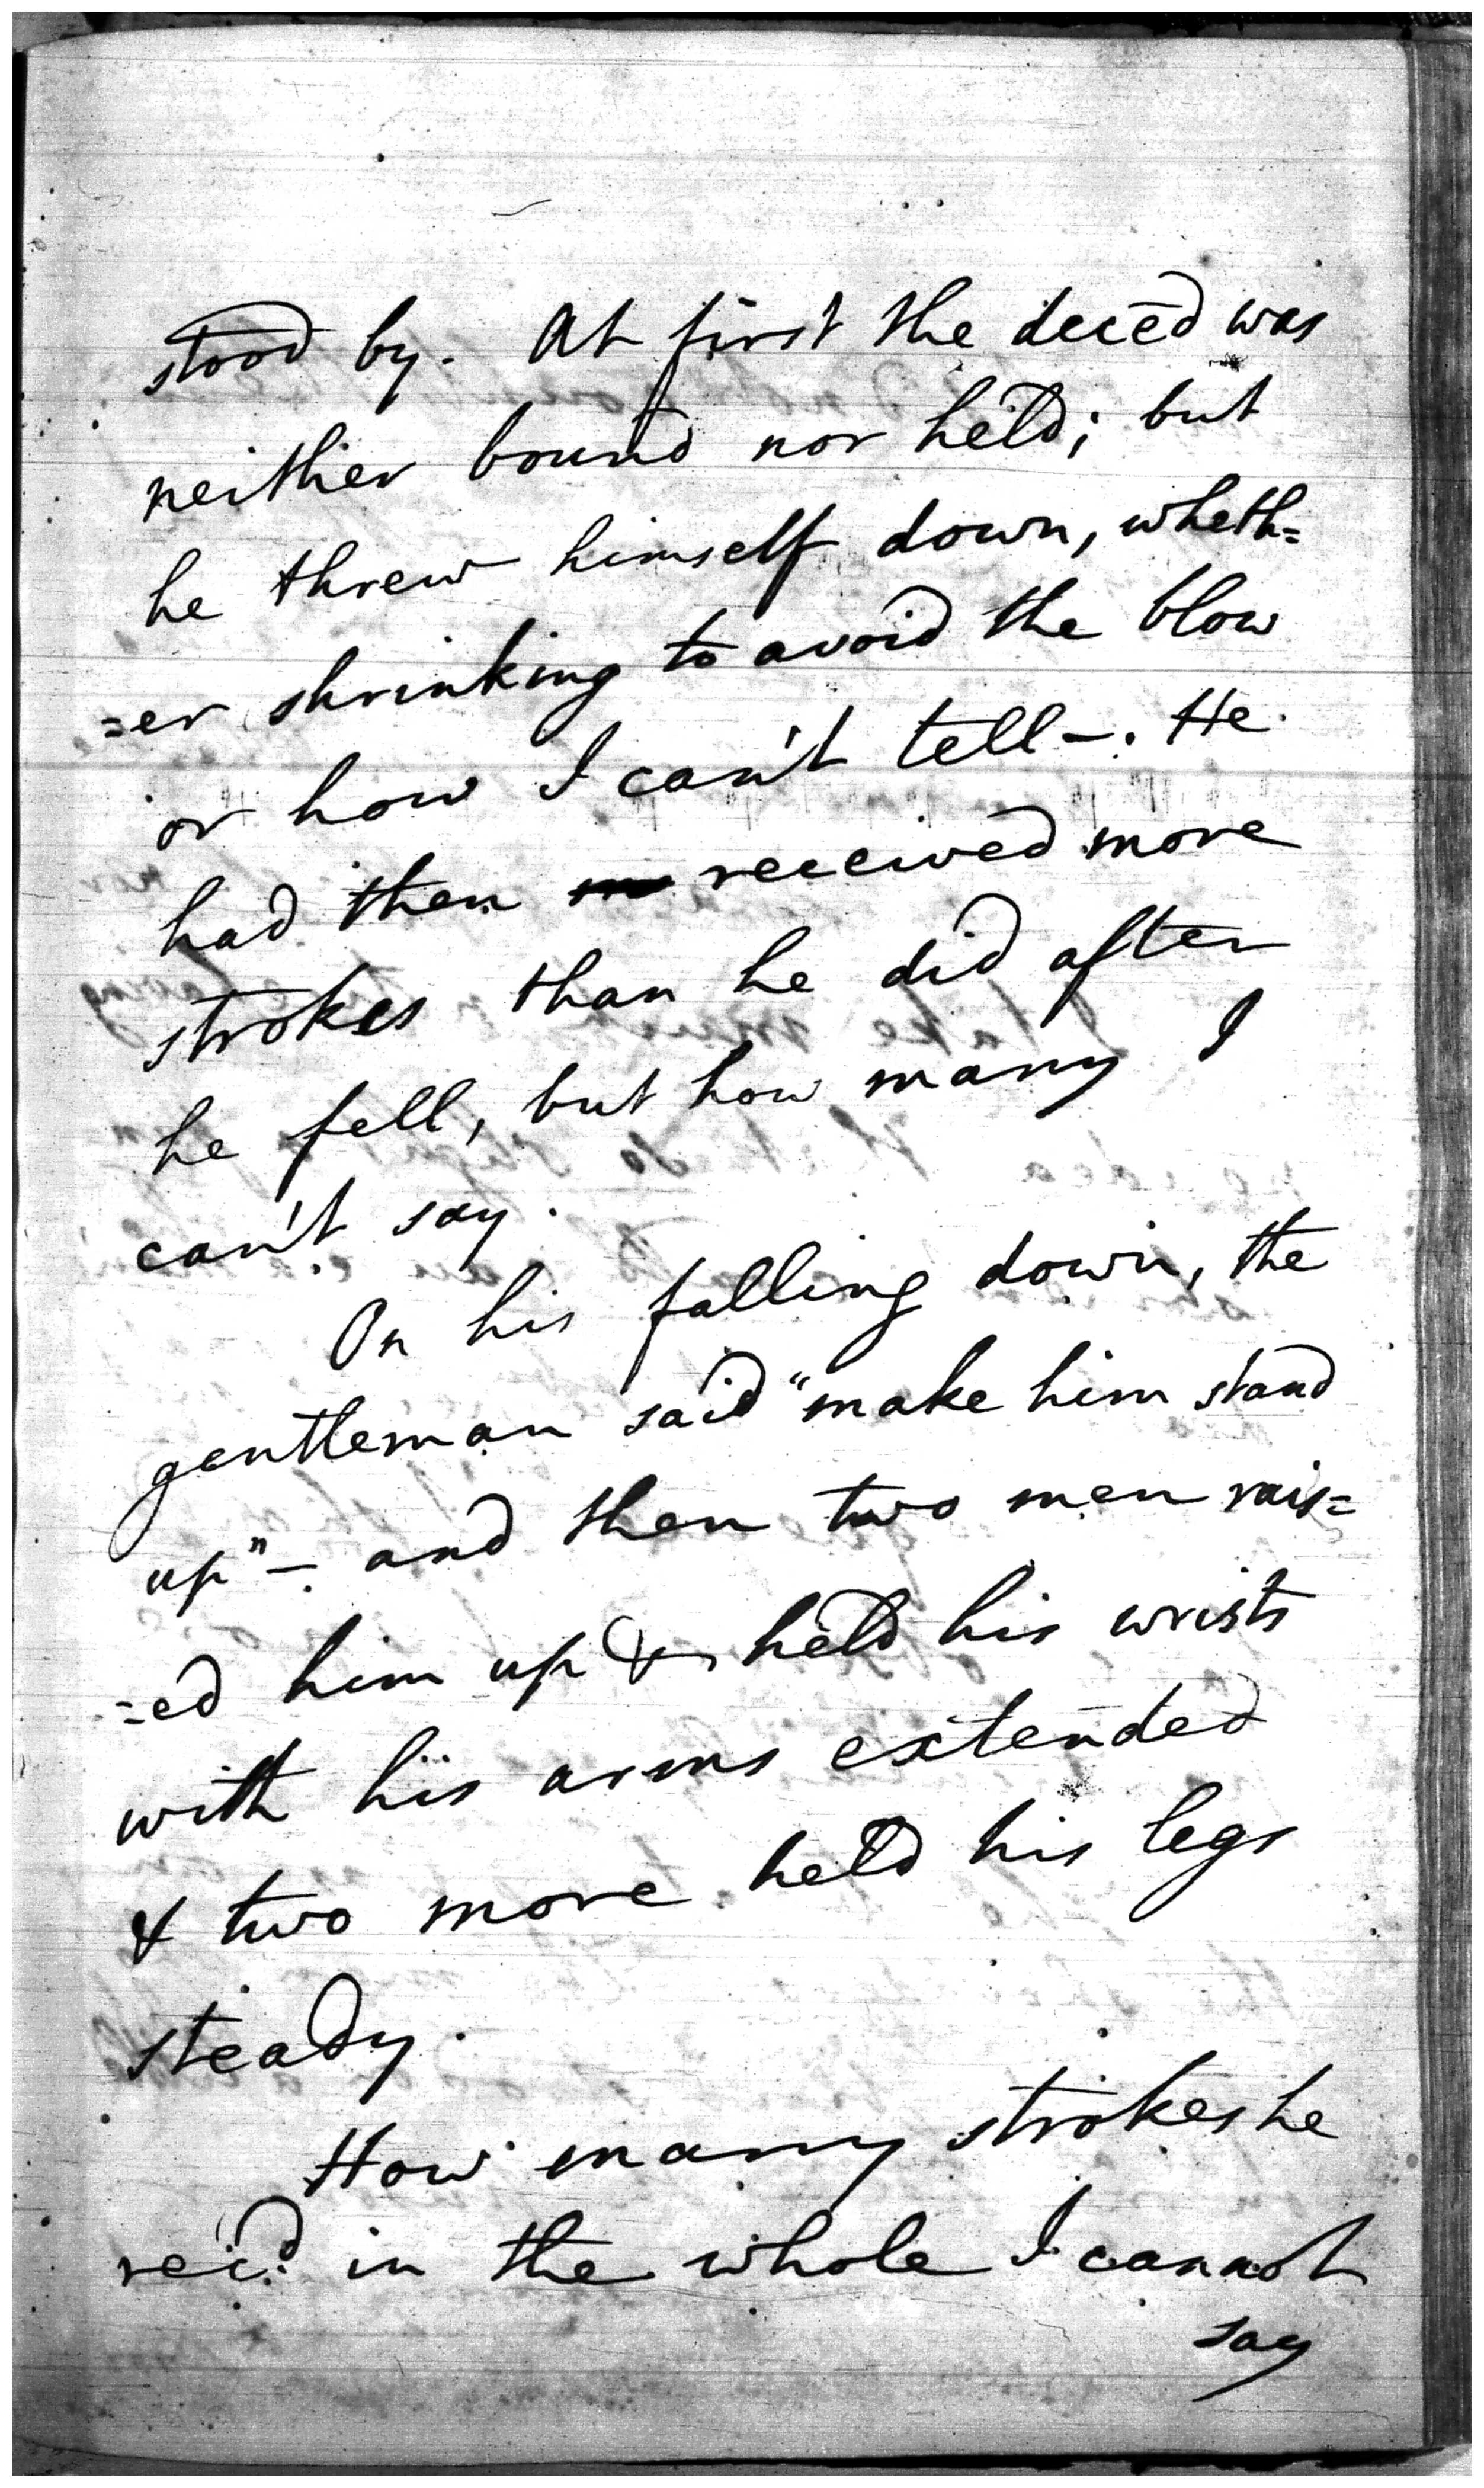 stood by. At first the deced was
neither bound nor held; but
he threw himself down, wheth=
=er shrinking to avoid the blow
or how I can't tell—. He
had then received more
strokes than he did after
he fell, but how many I
can't say.
On his falling down, the
gentleman said "make him stand
up"— and then two men rais=
=ed him up & held his wrists
with his arms extended
& two more held his legs
steady.
How many strokes he
rec'd in the whole I cannot
say